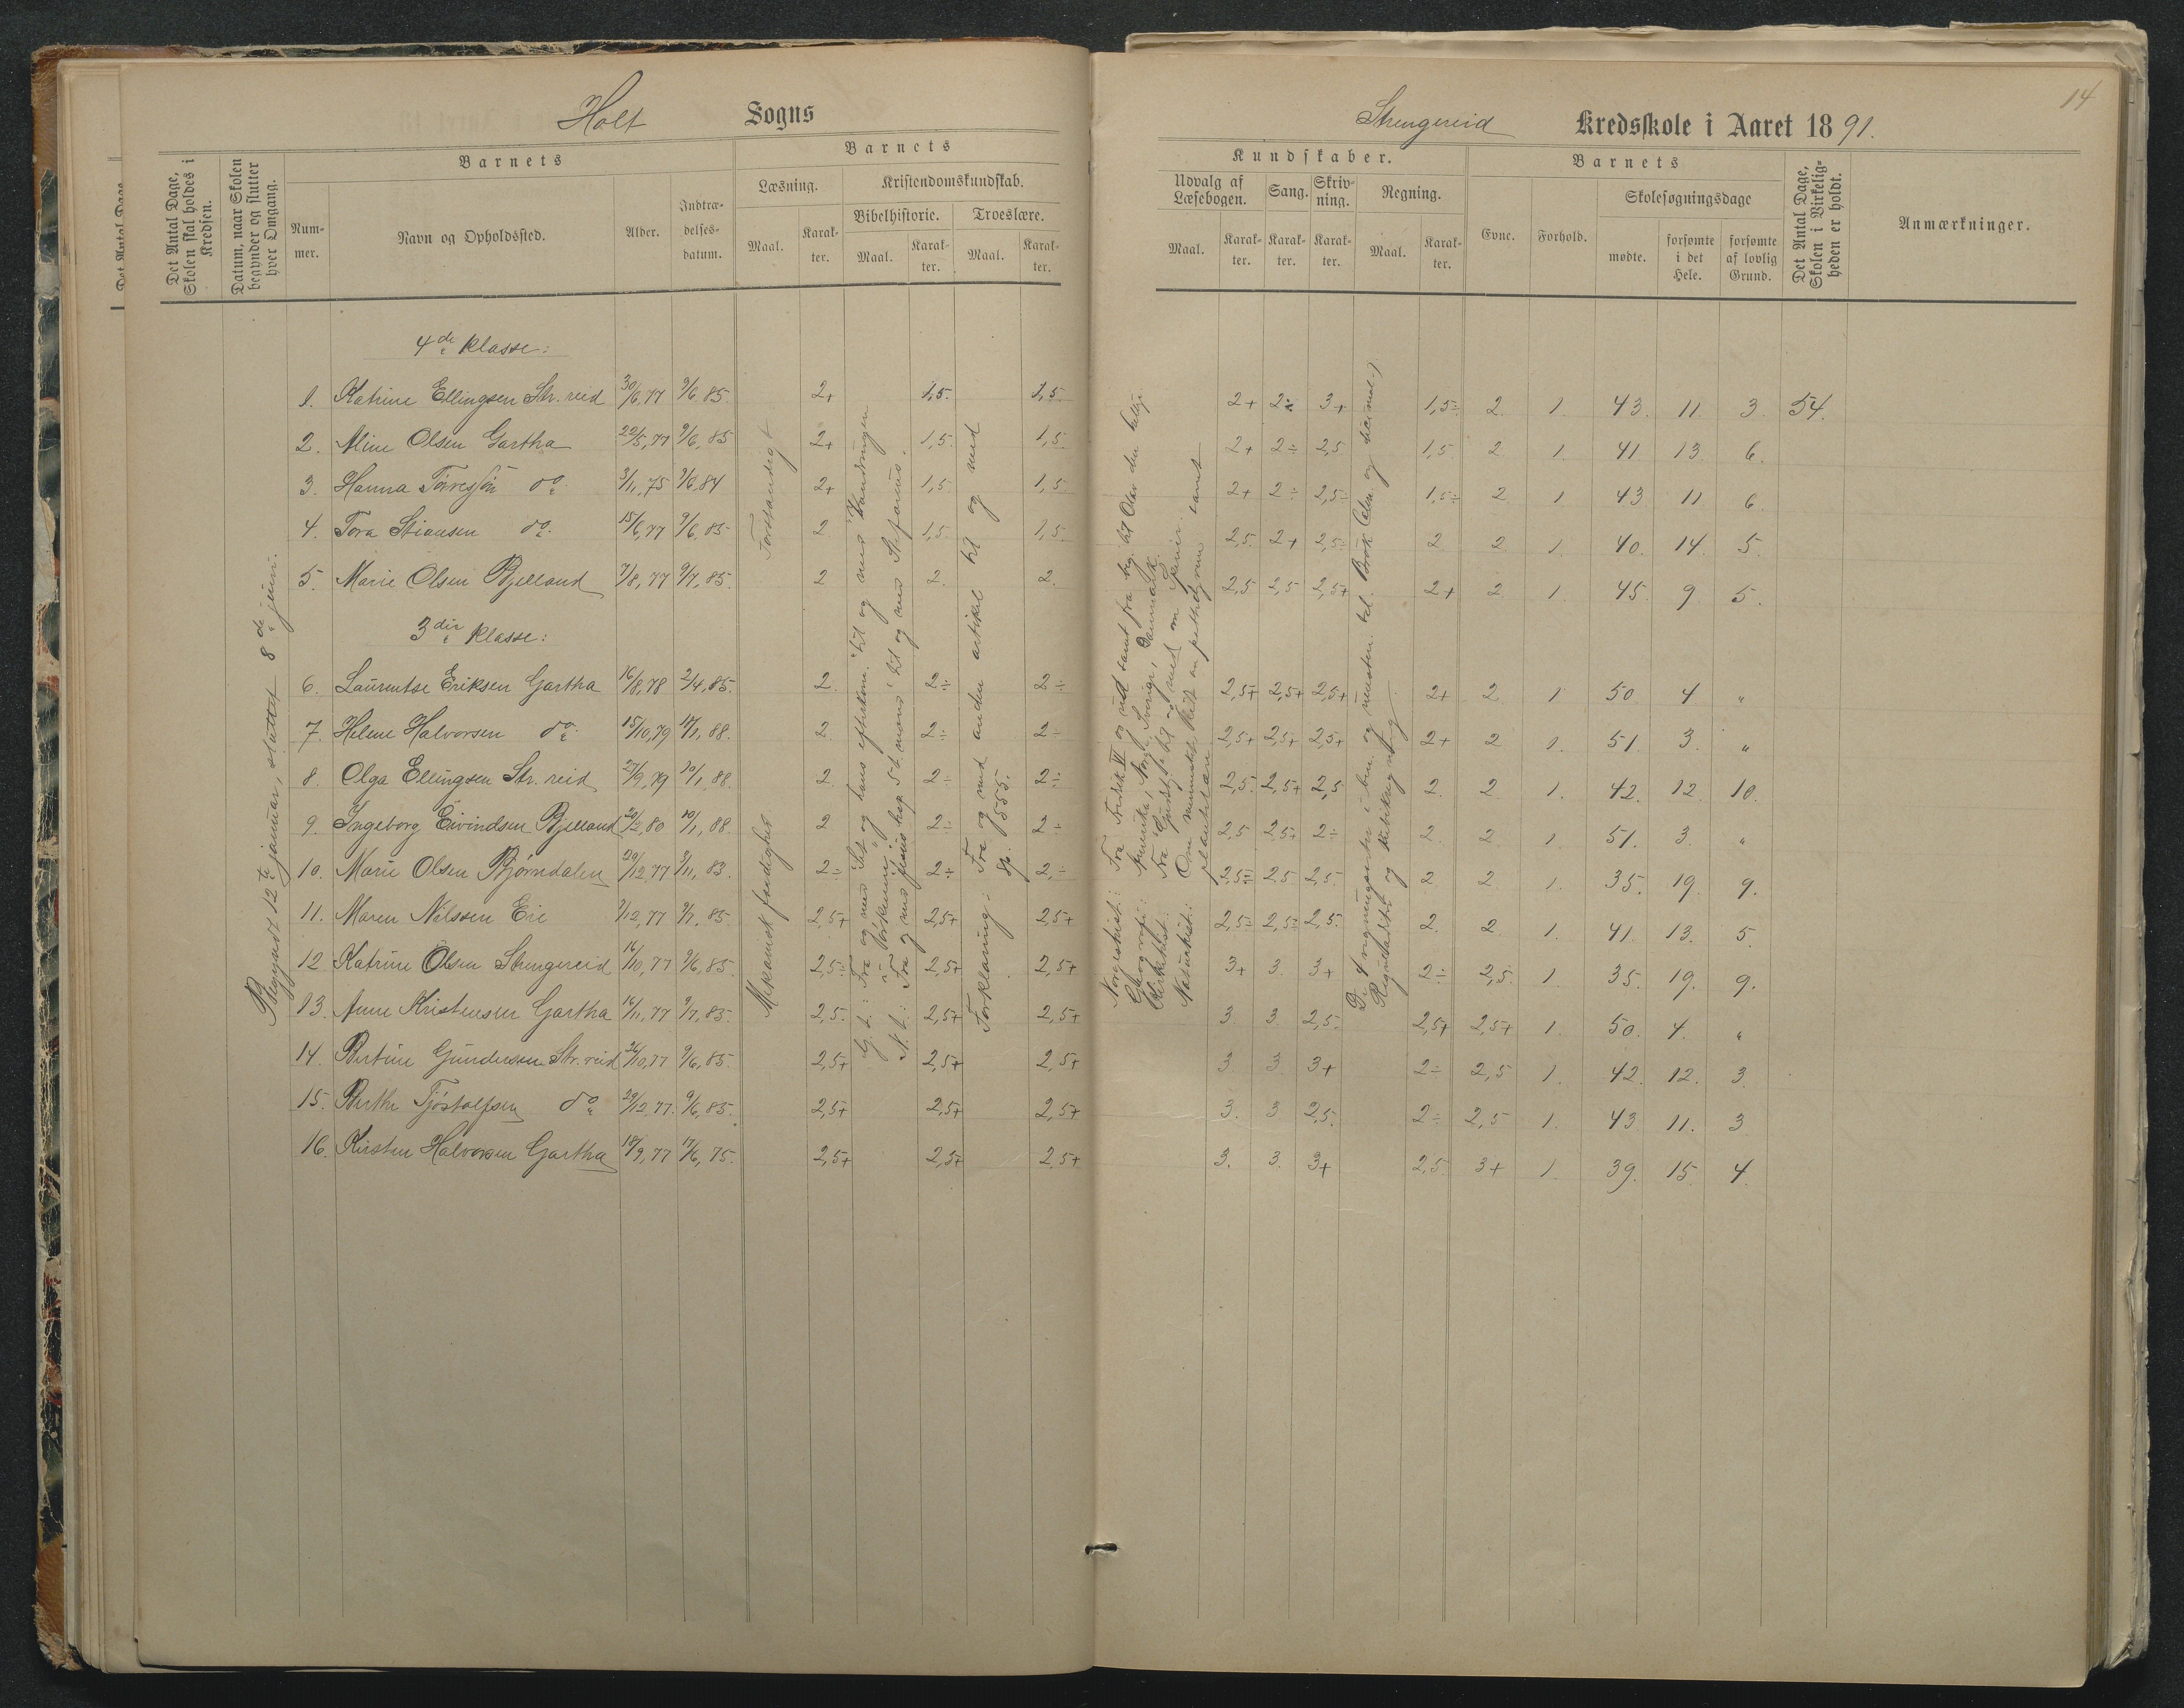 Holt Sogns
Det Antal Dage, Skolen skal holdes i Kredsen.
Datum, naar Skolen begynder og slutter hver Omgang.
Barnets
Nummer.
Navn og Opholdssted.
Alder.
Indtrædelsesdatum.
Barnets
Læsning.
Maal.
Karakter.
Kristendomskundskab.
Bibelhistorie.
Maal.
Karakter.
Troeslære.
Maal.
Karakter.
Begyndt 12te januar, sluttet 8de juni.
4de Klasse:
1. Katrine Ellingsen Str. reid 30/6,77 9/6 85 2+ 1,5. 1,5.
2. Aline Olsen Gartha 22/5,77 9/6,85 2+ 1,5. 1,5.
3. Hanna Torresjön do. 3/11,75 9/6,84 2+ 1,5. 1,5.
4. Tora Stiansen do. 15/6,77 9/6,85 2 1,5. 1,5.
5. Marie Olsen Bjelland 7/8,77 9/7,85. 2 2. 2.
3die Klasse:
6. Laurentse Eriksen Gartha 16/8,78 2/4,85. 2. 2÷ 2÷
7. Helene Halvorsen do. 15/10,79 17/1,88. 2. 2÷ 2÷
8. Olga Ellingsen Str. reid 27/9,79 20/1 88. 2. 2÷ 2÷
9. Ingeborg Eivindsen Bjelland 20/2,80 20/1,88. 2 2÷ 2÷
10. Marie Olsen Bjørndalen 29/12,77 3/11,83. 2÷ 2÷ 2,÷
11. Maren Nilssen Eie 7/12,77 9/7,85. 2,5+ 2,5+ 2,5+
12 Katrine Olsen Strengereid 16/10,77 9/6,85. 2,5÷ 2,5+ 2,5+
13. Anne Kristensen Gartha 16/11,77 9/7,85. 2,5. 2,5+ 2,5+
14. Bertine Gundersen Str. reid 26/10,77 9/6,85. 2,5+ 2,5+ 2,5+
15. Berthe Tjöstolfsen do. 29/12,77. 9/6,85. 2,5+ 2,5+ 2,5+
16. Kirsten Halvorsen Gartha 18/9,77 17/6,75. 2,5+ 2,5+ 2,5+
Forstandigt
Mekanisk færdighet
Forklaring: Fra og med anden artikel til og med
sp. 555.
14
Strengereid Kredsskole i Aaret 1891.
Kundskaber.
Udvalg af Læsebogen.
Maal.
Karakter.
Sang.
Karakter.
Skrivning.
Karakter.
Regning.
Maal.
Karakter.
Barnets
Evne.
Forhold.
Skolesøgningsdage
mødte.
forsømte i det Hele.
forsømte af lovlig Grund.
Det Antal Dage, Skolen i Virkeligheden er holdt.
Anmærkninger.
2+ 2÷ 3+ 1,5÷ 2. 1. 43. 11. 3. 54.
2+ 2÷ 2,5 1,5. 2 1. 41. 13. 6.
2+ 2÷ 2,5÷ 1,5÷ 2 1 43 11 6.
2,5. 2+ 2,5÷ 2 2 1. 40. 14. 5.
2,5 2,5 2,5+ 2+ 2. 1. 45. 9. 5.
2,5+ 2,5+ 2,5+ 2+ 2 1 50. 4 "
2,5+ 2,5+ 2,5+ 2+ 2 1. 51. 3. "
2,5. 2,5+ 2,5 2. 2. 1. 42. 12. 10.
2,5 2,5+ 2÷ 2 2 1. 51. 3. "
2,5÷ 2,5 2,5. 2 2. 1. 35. 19. 9.
2,5÷ 2,5÷ 2,5. 2. 2. 1. 41. 13. 5.
3+ 3. 3+ 2÷ 2,5. 1. 35. 19. 9.
3. 3. 2,5. 2,5+ 2,5+ 1. 50. 4. "
3 3. 3+ 2÷ 2,5 1. 42. 12. 3.
3. 3 2,5. 2÷ 2,5 1. 43 11. 3
3. 3. 3+ 2,5 3+ 1. 39. 15. 4.